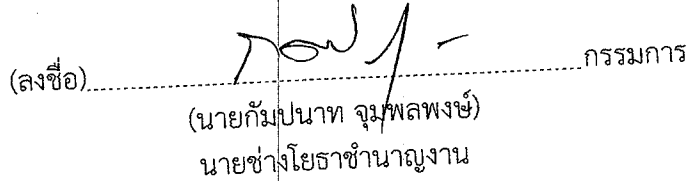 (ลงชื่อ)......................................................................กรรมการ
(นายกัมปนาท จุมพลพงษ์)
นายช่างโยธาชำนาญงาน